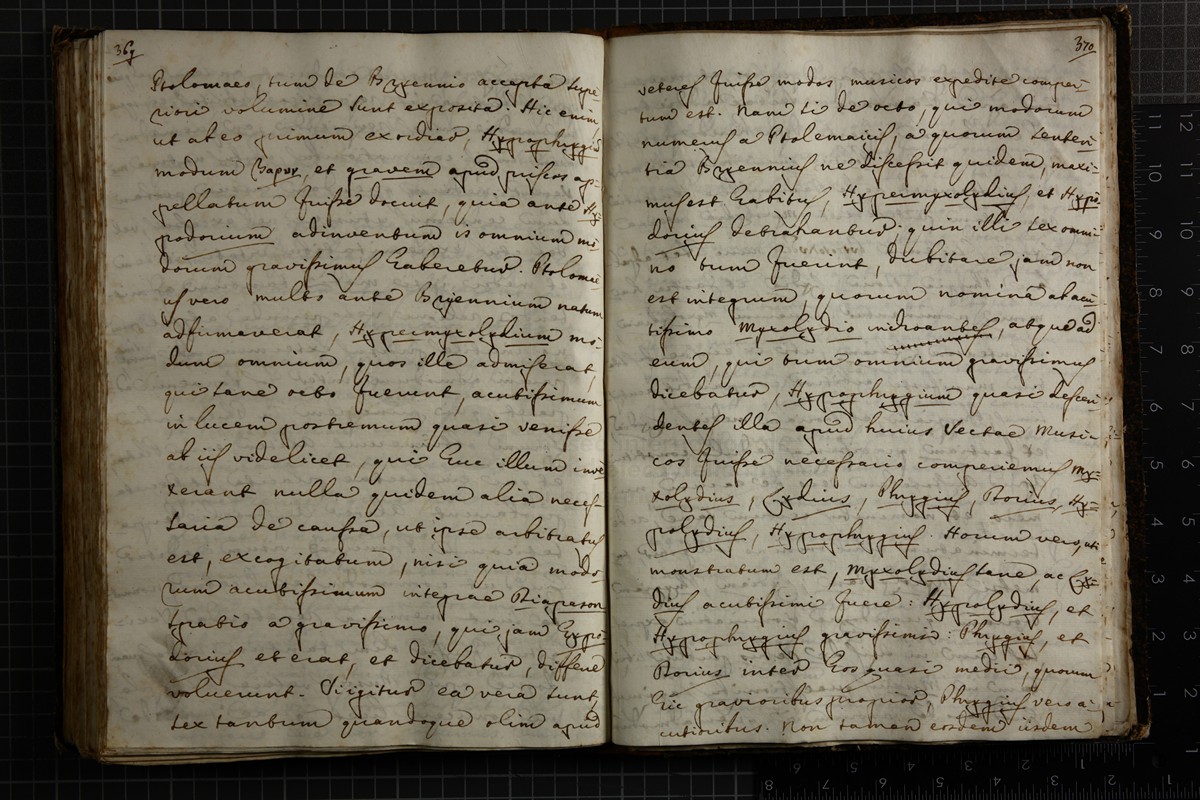 369
Ptolomaeo, tum de Bryennio accepta supe
riori volumine sunt exposita. Hic enim,
ut ab eo primum exordiar, Hypophrygiũ
modum Βαρυν, et gravem apud priscos ap-
pellatum fuisse docuit, quia ante Hy-
podorium adinventum is omnium mo
dorum gravissimus haberetur. Ptolomae
us vero multo ante Bryennium natus
adfirmaverat, Hypermyxolydium mo-
dum omnium, quos ille admiserat,
qui sane octo fuerunt, acutissimum
in lucem postremum quasi venisse
ab iis videlicet, qui huc illum inve
xerant nulla quidem alia neces
saria de caussa, ut ipse arbitratus
est, excogitatum, nisi quia modo
rum acutissimum integrae Diapason
spatio a gravissimo, qui jam Hypo
dorius et erat, et dicebatur, differre
voluerunt. Si igitur ea vera sunt,
sex tantum quandoque olim apud
370
veteres fuisse modos musicos expedite comper
tum est. Nam si de octo, qui modorum
numerus a Ptolemaicis, a quorum senten
tia Bryennius ne discessit quidem, maxi
mus est habitus, Hypermyxolydius, et Hypo
dorius detrahantur: quin illi sex omni
no tum fuerint, dubitare jam non
est integrum, quorum nomina ab acu
tissimo Myxolydio indroantes, atque ad
eum, qui tum omnium gravissimus
dicebatur, Hypophrygium quasi descen
dentes illa apud huius sectae Musi
cos fuisse necessario comperiemus My-
xolydius, Lydius, Phrygius, Dorius, Hy-
polydius, Hypophrygius. Horum vero, uti
monstratum est, Myxolydius sane, ac Ly-
dius acutissimi fuere: Hypolydius, et
Hypophrygius gravissimi: Phrygius, et
Dorius inter hos quasi medii, quorum
hic gravioribus propior, Phrygius vero a-
cutioribus. Non tamen eosdem iisdem